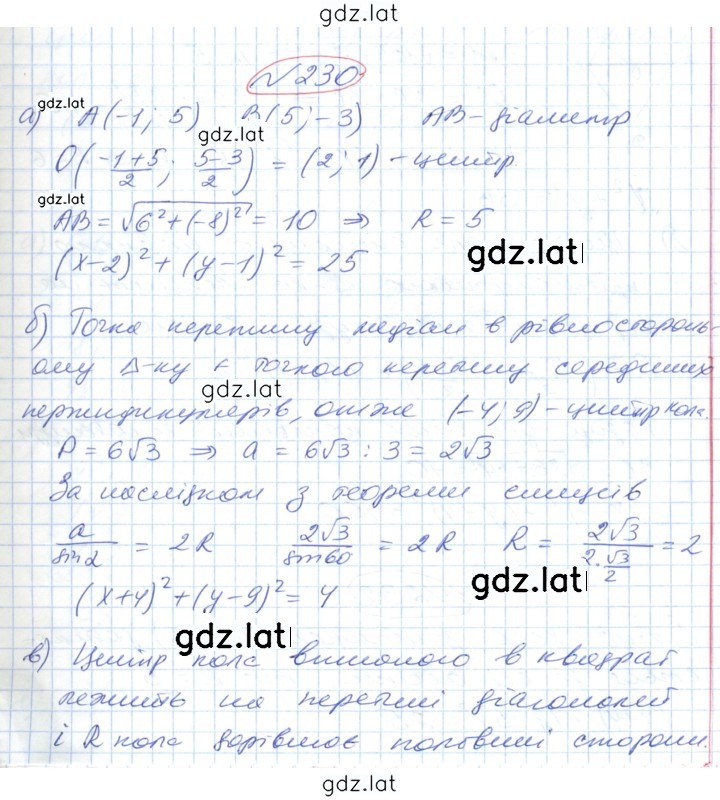 gdz.lat
№230
gdz.lat
а) A(-1; 5) B(5; -3) AB - діаметр
gdz.lat
O(\frac{-1+5}{2}; \frac{5-3}{2}) = (2; 1) - центр
gdz.lat
AB = √(6²+(-8)²) = 10 ⇒ R = 5
gdz.lat
(x-2)² + (y-1)² = 25
б) Точка перетину медіан в рівносторонь-
ому Δ-ку є точкою перетину серединних
gdz.lat
перпендикулярів, отже (-4; 9) - центр кола.
P = 6√3 ⇒ a = 6√3 : 3 = 2√3
За наслідком з теореми синусів
\frac{a}{sin α} = 2R \frac{2√3}{sin 60} = 2R R = \frac{2√3}{2·\frac{√3}{2}} = 2
gdz.lat
(x+4)² + (y-9)² = 4
gdz.lat
в) Центр кола вписаного в квадрат
лежить на перетині діагоналей
і R кола дорівнює половині сторони.
gdz.lat